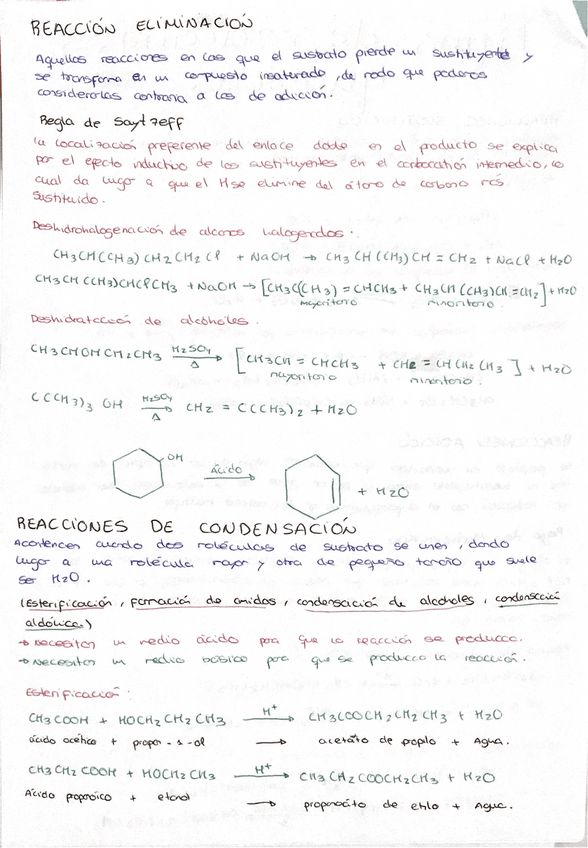 REACCIÓN ELIMINACIÓN
Aquellas reacciones en las que el sustrato pierde un sustituyente y
se transforma en un compuesto insaturado, de modo que podemos
considerarlas contraria a las de adición.
Regla de Saytzeff
la localización preferente del enlace doble en el producto se explica
por el efecto inductivo de los sustituyentes en el carbocatión intermedio, lo
cual da lugar a que el H se elimine del átomo de carbono más
sustituido.
Deshidrohalogenación de alcanos halogenados.
CH3CH(CH3)CH2CH2Cl + NaOH → CH3CH(CH3)CH = CH2 + NaCl + H2O
CH3CH(CH3)CHClCH3 + NaOH → [CH3C(CH3) = CHCH3 + CH3CH(CH3)CH = CH2] + H2O
mayoritario minoritario.
Deshidratación de alcoholes.
CH3CHOHCH2CH3 H2SO4 Δ → [CH3CH = CHCH3 + CH2 = CHCH2CH3] + H2O
mayoritario minoritario.
C(CH3)3OH H2SO4 Δ → CH2 = C(CH3)2 + H2O
OH ácido → + H2O
REACCIONES DE CONDENSACIÓN
Acontencen cuando dos moléculas de sustrato se unen, dando
lugar a una molécula mayor y otra de pequeño tamaño que suele
ser H2O.
(Esterificación, formación de amidas, condensación de alcoholes, condensación
aldónica.)
→ Necesitan un medio ácido para que la reacción se produzca.
→ Necesitan un medio básico para que se produzca la reacción.
Esterificación:
CH3COOH + HOCH2CH2CH3 H+ → CH3COOCH2CH2CH3 + H2O
ácido acético + propan-1-ol → acetato de propilo + Agua.
CH3CH2COOH + HOCH2CH3 H+ → CH3CH2COOCH2CH3 + H2O
Ácido propanoico + etanol → propanoato de etilo + Agua.